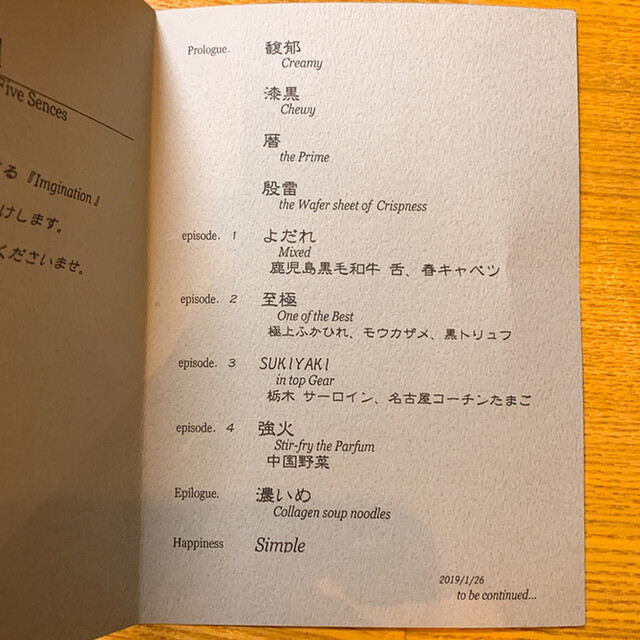 Five Sences
る『Imgination』
けします。
くださいませ。
Prologue. 馥郁
Creamy
漆黒
Chewy
暦
the Prime
殷雷
the Wafer sheet of Crispness
episode. 1 よだれ
Mixed
鹿児島黒毛和牛 舌、春キャベツ
episode. 2 至極
One of the Best
極上ふかひれ、モウカザメ、黒トリュフ
episode. 3 SUKIYAKI
in top Gear
栃木 サーロイン、名古屋コーチンたまご
episode. 4 強火
Stir-fry the Parfum
中国野菜
Epilogue. 濃いめ
Collagen soup noodles
Happiness Simple
2019/1/26
to be continued...